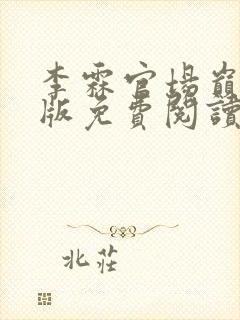 李霖官場巔
版免費閱讀
北莊